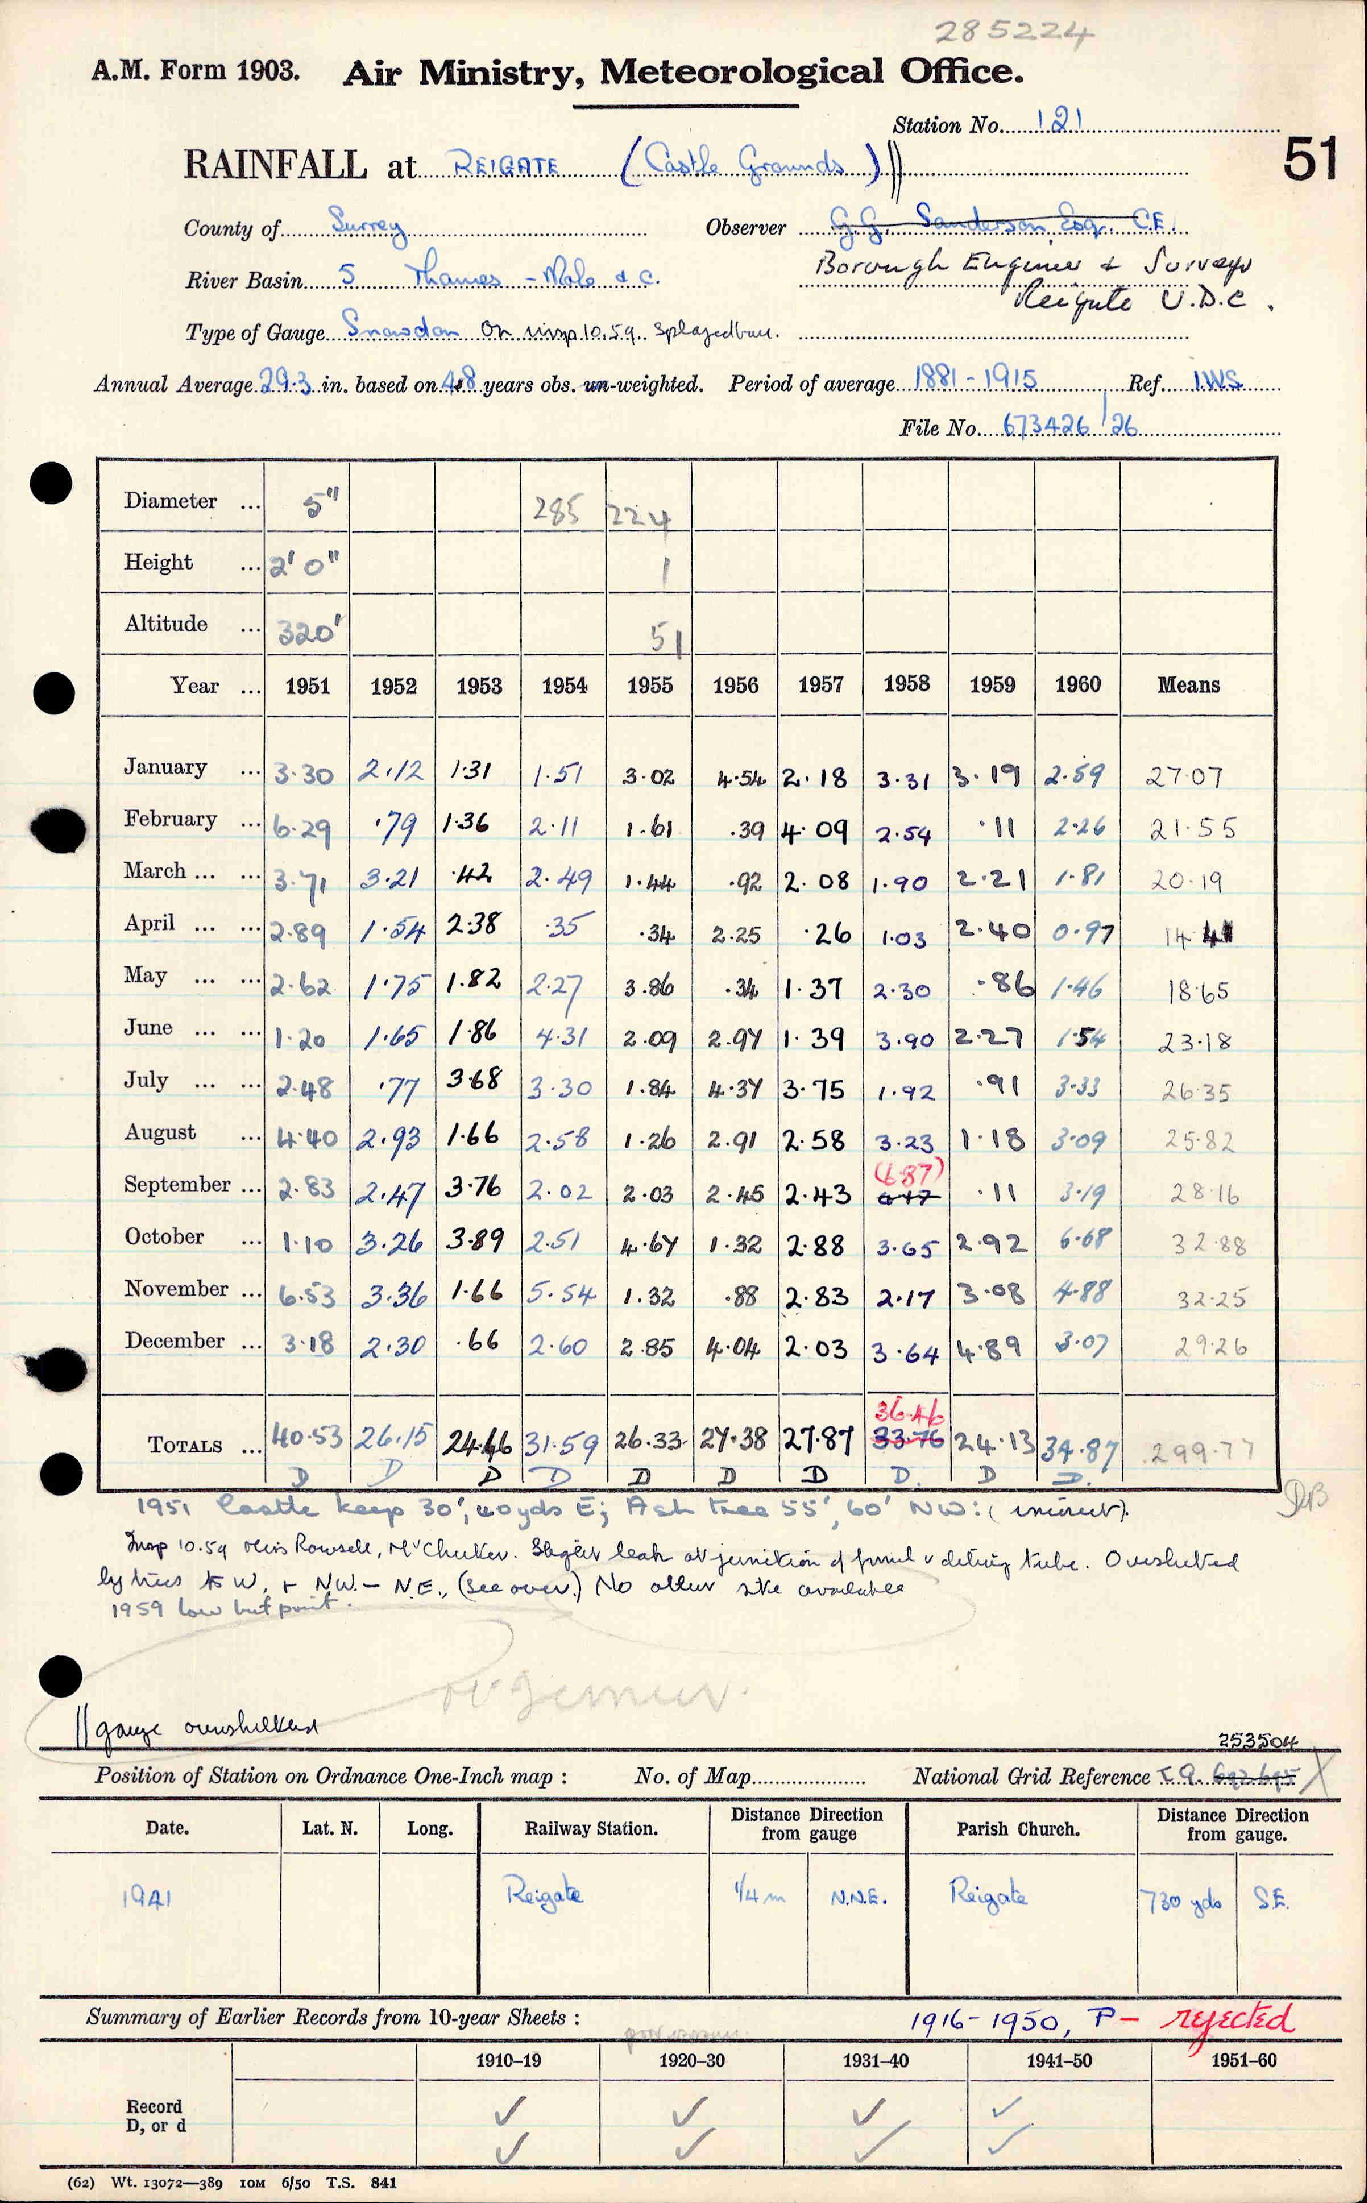 285224
A.M. Form 1903. Air Ministry, Meteorological Office.
Station No. 121
51
RAINFALL at REIGATE (Castle Grounds)
County of Surrey Observer G.G. Sanderson, Esq., C.E.
River Basin 5 Thames - Mole & C. Borough Engineer & Surveyor
Reigate U.D.C.
Type of Gauge Snowdon On insp 10.59. splayed base.
Annual Average 29.3 in. based on 48 years obs. un-weighted. Period of average 1881-1915 Ref. I.W.S.
File No. 673426/26
Diameter ... 5" 285 224
Height ... 2' 0" 1
Altitude ... 320' 51
Year ... 1951 1952 1953 1954 1955 1956 1957 1958 1959 1960 Means
January ... 3.30 2.12 1.31 1.51 3.02 4.54 2.18 3.31 3.19 2.59 27.07
February ... 6.29 .79 1.36 2.11 1.61 .39 4.09 2.54 .11 2.26 21.55
March ... ... 3.71 3.21 .42 2.49 1.44 .92 2.08 1.90 2.21 1.81 20.19
April ... ... 2.89 1.54 2.38 .35 .34 2.25 .26 1.03 2.40 0.97 14.41
May ... ... 2.62 1.75 1.82 2.27 3.86 .34 1.37 2.30 .86 1.46 18.65
June ... ... 1.20 1.65 1.86 4.31 2.09 2.97 1.39 3.90 2.27 1.54 23.18
July ... ... 2.48 .77 3.68 3.30 1.84 4.37 3.75 1.92 .91 3.33 26.35
August ... 4.40 2.93 1.66 2.58 1.26 2.91 2.58 3.23 1.18 3.09 25.82
(6.87)
September ... 2.83 2.47 3.76 2.02 2.03 2.45 2.43 4.17 .11 3.19 28.16
October ... 1.10 3.26 3.89 2.51 4.67 1.32 2.88 3.65 2.92 6.68 32.88
November ... 6.53 3.36 1.66 5.54 1.32 .88 2.83 2.17 3.08 4.88 32.25
December ... 3.18 2.30 .66 2.60 2.85 4.04 2.03 3.64 4.89 3.07 29.26
36.46
TOTALS ... 40.53 26.15 24.46 31.59 26.33 27.38 27.87 33.76 24.13 34.87 299.77
D D D D D D D D. D D.
1951 Castle keep 30', 40yds E; Ash tree 55', 60' NW: (
Insp 10.59 Miss Rowsell, Slight leak at junction of funnel & delivery tube. Oversheltered
by trees to W, + NW. - N.E., (see over.) No other site available
1959 low but
|| gauge oversheltered
253504
Position of Station on Ordnance One-Inch map : No. of Map National Grid Reference T.Q. 692695 X
Date. Lat. N. Long. Railway Station. Distance Direction from gauge Parish Church. Distance Direction from gauge.
1941 Reigate 1/4 m N.N.E. Reigate 730 yds S.E.
Summary of Earlier Records from 10-year Sheets : 1916-1950, P - rejected
1910–19 1920–30 1931–40 1941–50 1951–60
Record ✓ ✓ ✓ ✓
D, or d ✓ ✓ ✓ ✓
(62) Wt. 13072—389 10M 6/50 T.S. 841